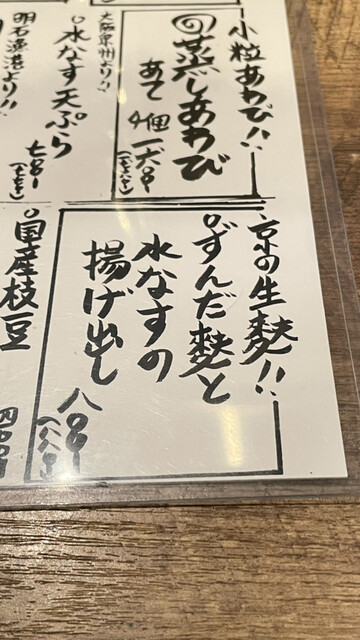 小粒あわび!!
蒸しあわび
あて 4個 一六〇〇
大阪泉州より!!
水なす天ぷら
七八〇
明石漁港より!!
京の生麩!!
ずんだ麩と
水なすの
揚げ出し
八〇〇
(八八〇)
国産枝豆